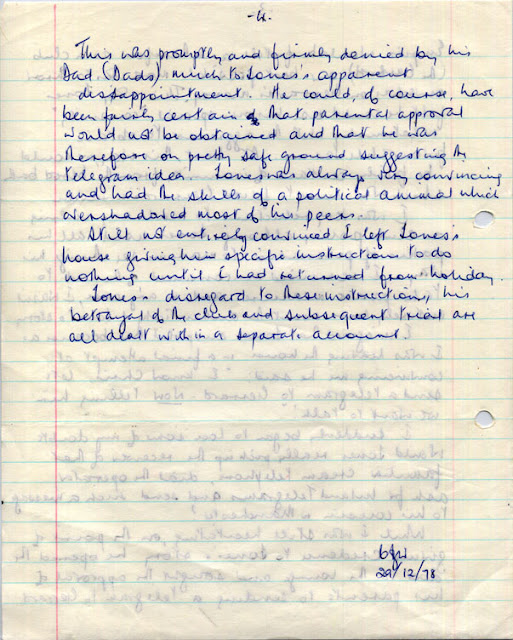 -4-
This was promptly and firmly denied by his
Dad (Dads) much to Jones's apparent
dissappointment. He could, of course, have
been fairly certain that parental approval
would not be obtained and that he was
therefore on pretty safe ground suggesting the
telegram idea. Jones was always very convincing
and had the skills of a political animal which
overshadowed most of his peers.
Still not entirely convinced I left Jones's
house giving him specific instructions to do
nothing until I had returned from holiday.
Jones's disregard to these instructions, his
betrayal of the club and subsequent trial are
all dealt with in a separate account.
29/12/78